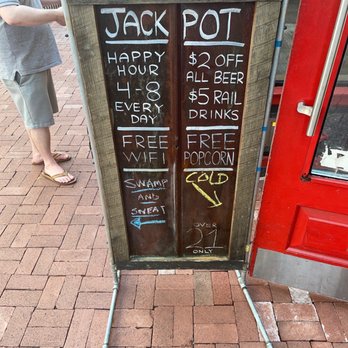 JACK POT
HAPPY
HOUR
4-8
EVERY
DAY
FREE
WIFI
SWAMP
AND
SWEAT
$2 OFF
ALL BEER
$5 RAIL
DRINKS
FREE
POPCORN
COLD
OVER
21
ONLY